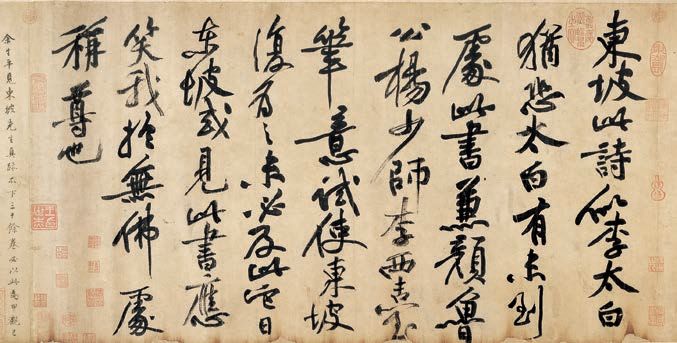 東坡此詩似李太白
猶恐太白有未到
處此書兼顏魯
公楊少師李西臺
筆意試使東坡
復為之未必及此它日
東坡或見此書應
笑我於無佛處
稱尊也
余生平見東坡先生真跡不下三十餘卷必以此為甲觀已